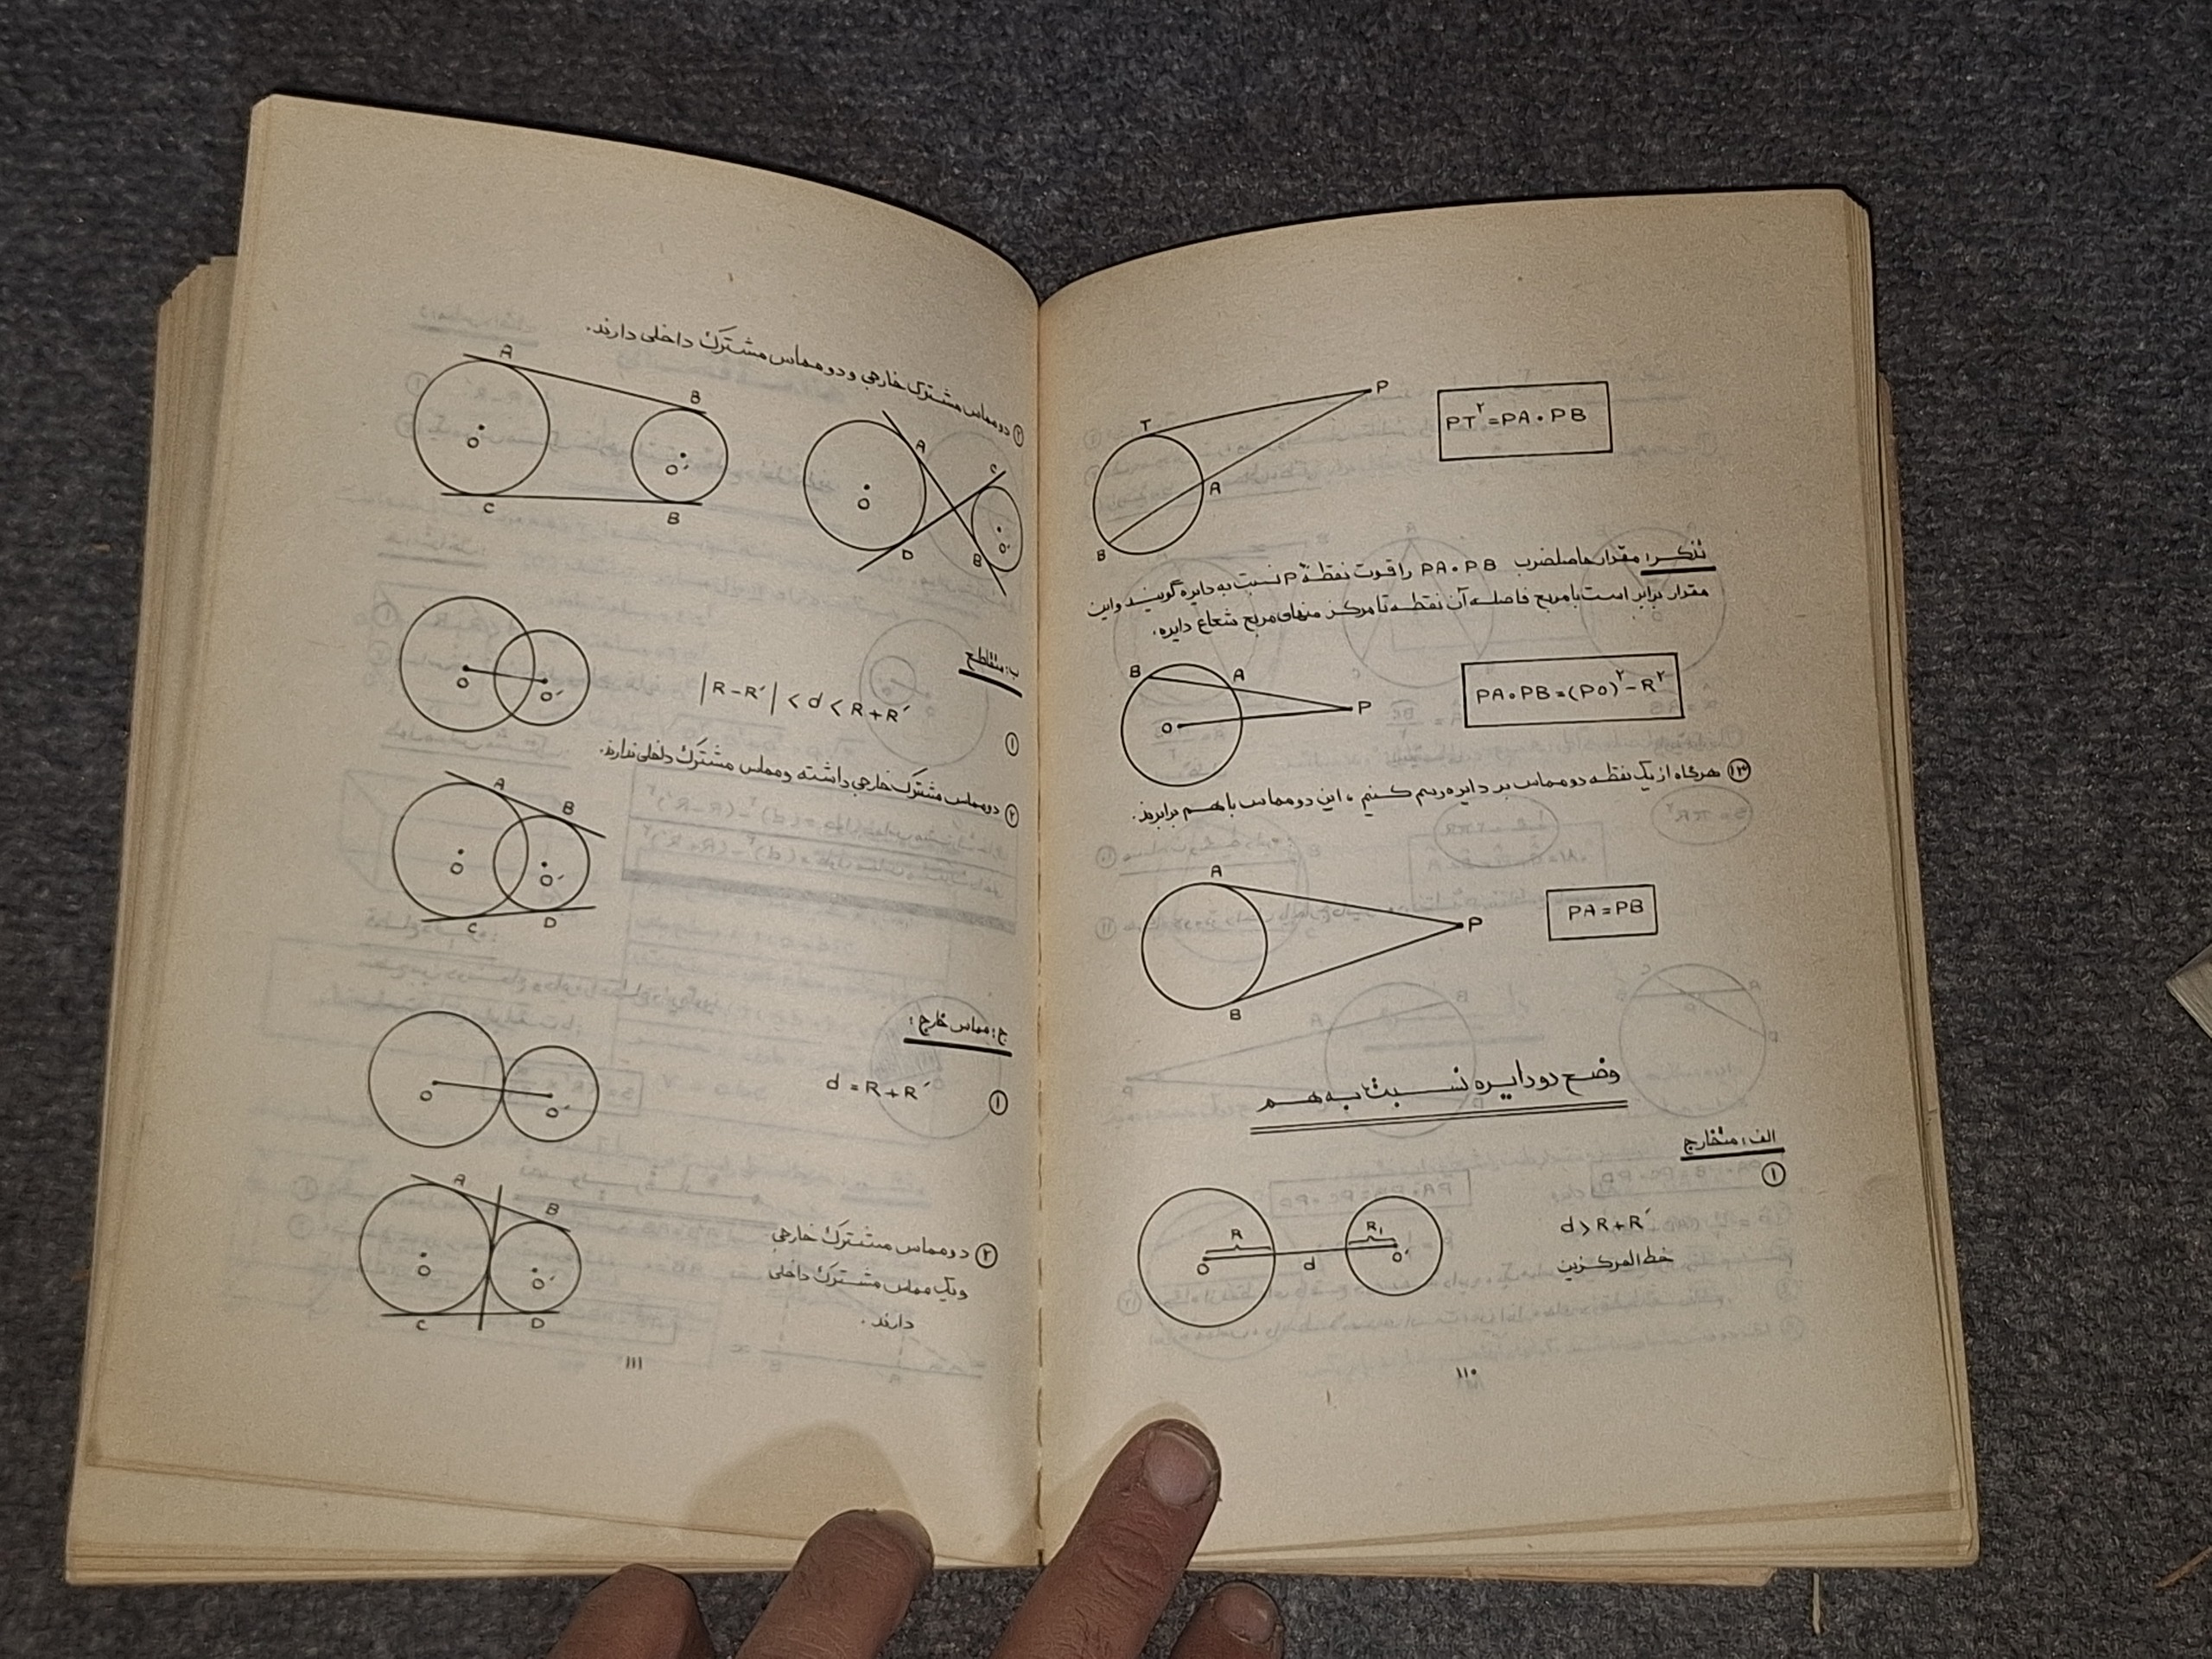 PT^۲ = PA . PB
P
T
A
B
تذکر: مقدار حاصلضرب PA . PB را قوت نقطهٔ P نسبت به دایره گویند و این
مقدار برابر است با مربع فاصله آن نقطه تا مرکز منهای مربع شعاع دایره.
B
A
P
O
PA . PB = (PO)^۲ - R^۲
۱۳ هرگاه از یک نقطه دو مماس بر دایره رسم کنیم، این دو مماس با هم برابرند.
A
P
B
PA = PB
وضع دو دایره نسبت به هم
الف: متخارج
۱
d > R + R′
خط المرکزین
R
R₁
O
d
O′
۱۱۰
۲ دو مماس مشترک خارجی و دو مماس مشترک داخلی دارند.
A
B
O
O′
C
B
A
C
O
O′
D
B
ب: متقاطع
۱
|R - R′| < d < R + R′
O
O′
۲ دو مماس مشترک خارجی داشته و مماس مشترک داخلی ندارند.
A
B
O
O′
C
D
ج: مماس خارج:
۱
d = R + R′
O
O′
۲ دو مماس مشترک خارجی
و یک مماس مشترک داخلی
دارند.
A
B
O
O′
C
D
۱۱۱